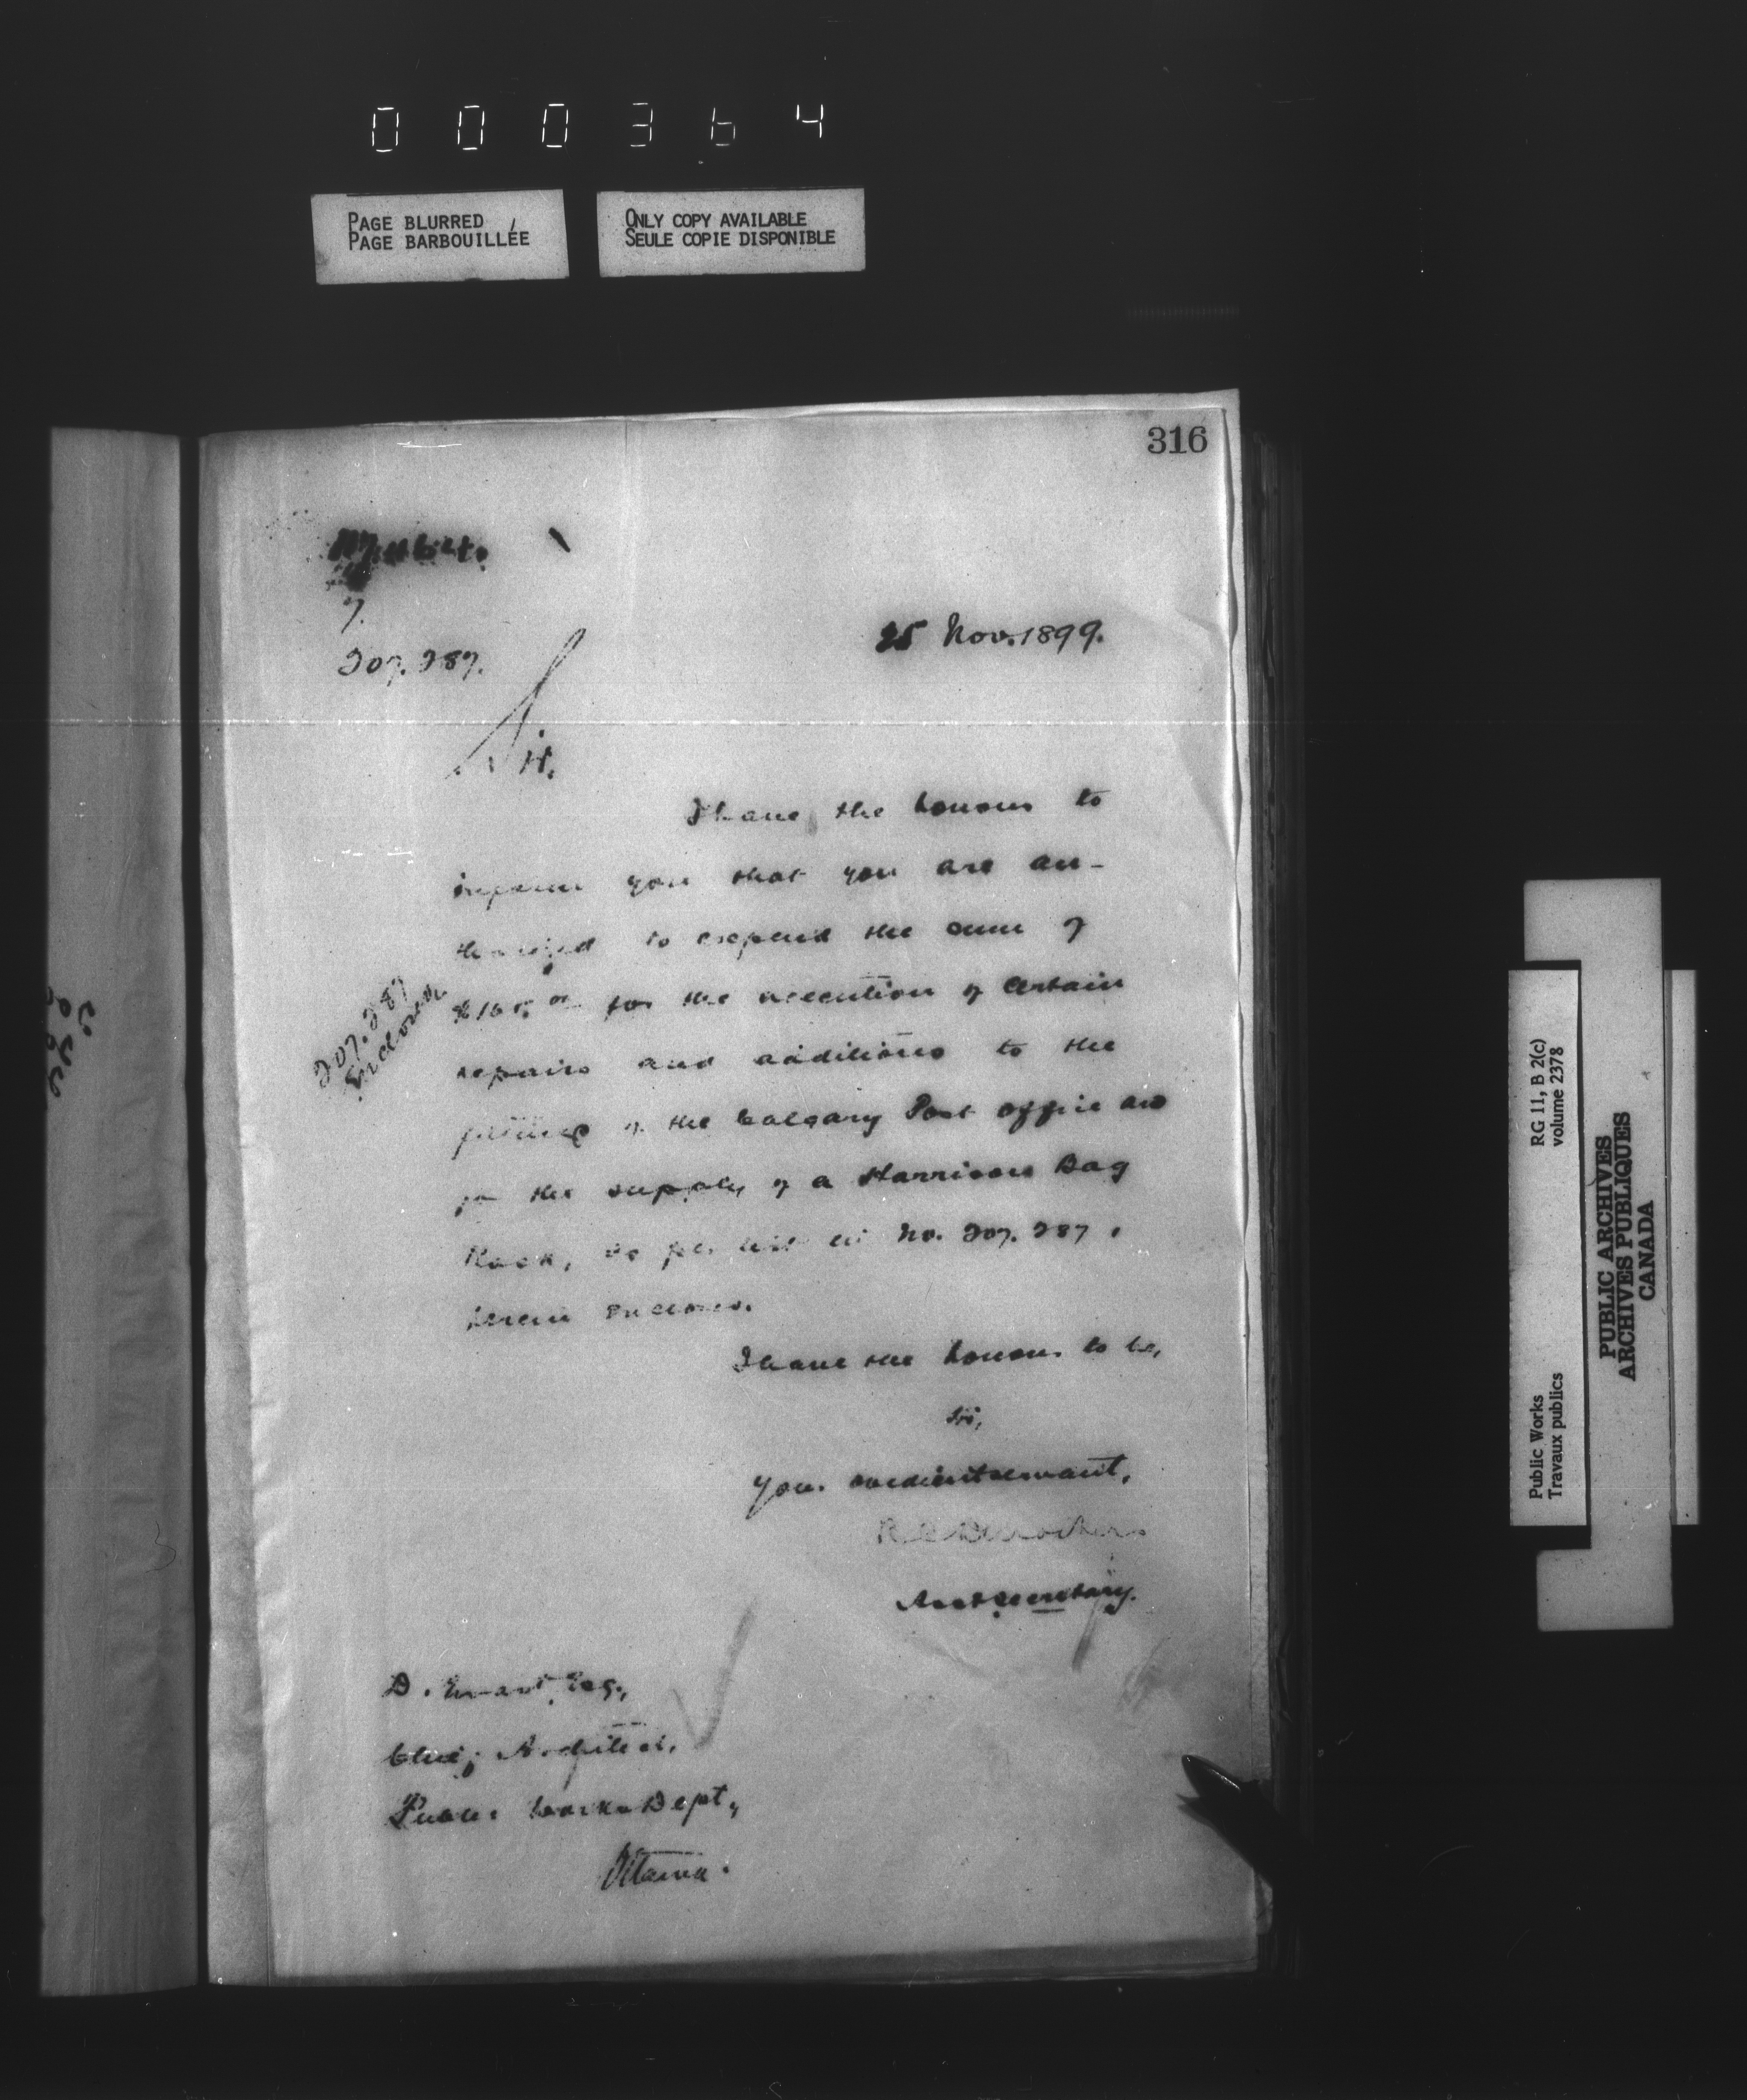 000364
PAGE BLURRED
PAGE BARBOUILLÉE
ONLY COPY AVAILABLE
SEULE COPIE DISPONIBLE
316
7.
207.287.
25 Nov. 1899.
Sir,
I have the honour to
inform you that you are au-
thorized to expend the sum of
for the execution of certain
repairs and additions to the
fittings of the Calgary Post Office and
for the supply of a Harrison Bag
Rack, as per list in No. 207.287,
herein enclosed.
207.287
Enclosed
I have the honour to be,
Sir,
Your obedient servant,
Asst Secretary.
D. Ewart, Esq.,
Chief Architect,
Public Works Dept,
Ottawa.
Public Works
Travaux publics
RG 11, B 2(c)
volume 2378
PUBLIC ARCHIVES
ARCHIVES PUBLIQUES
CANADA